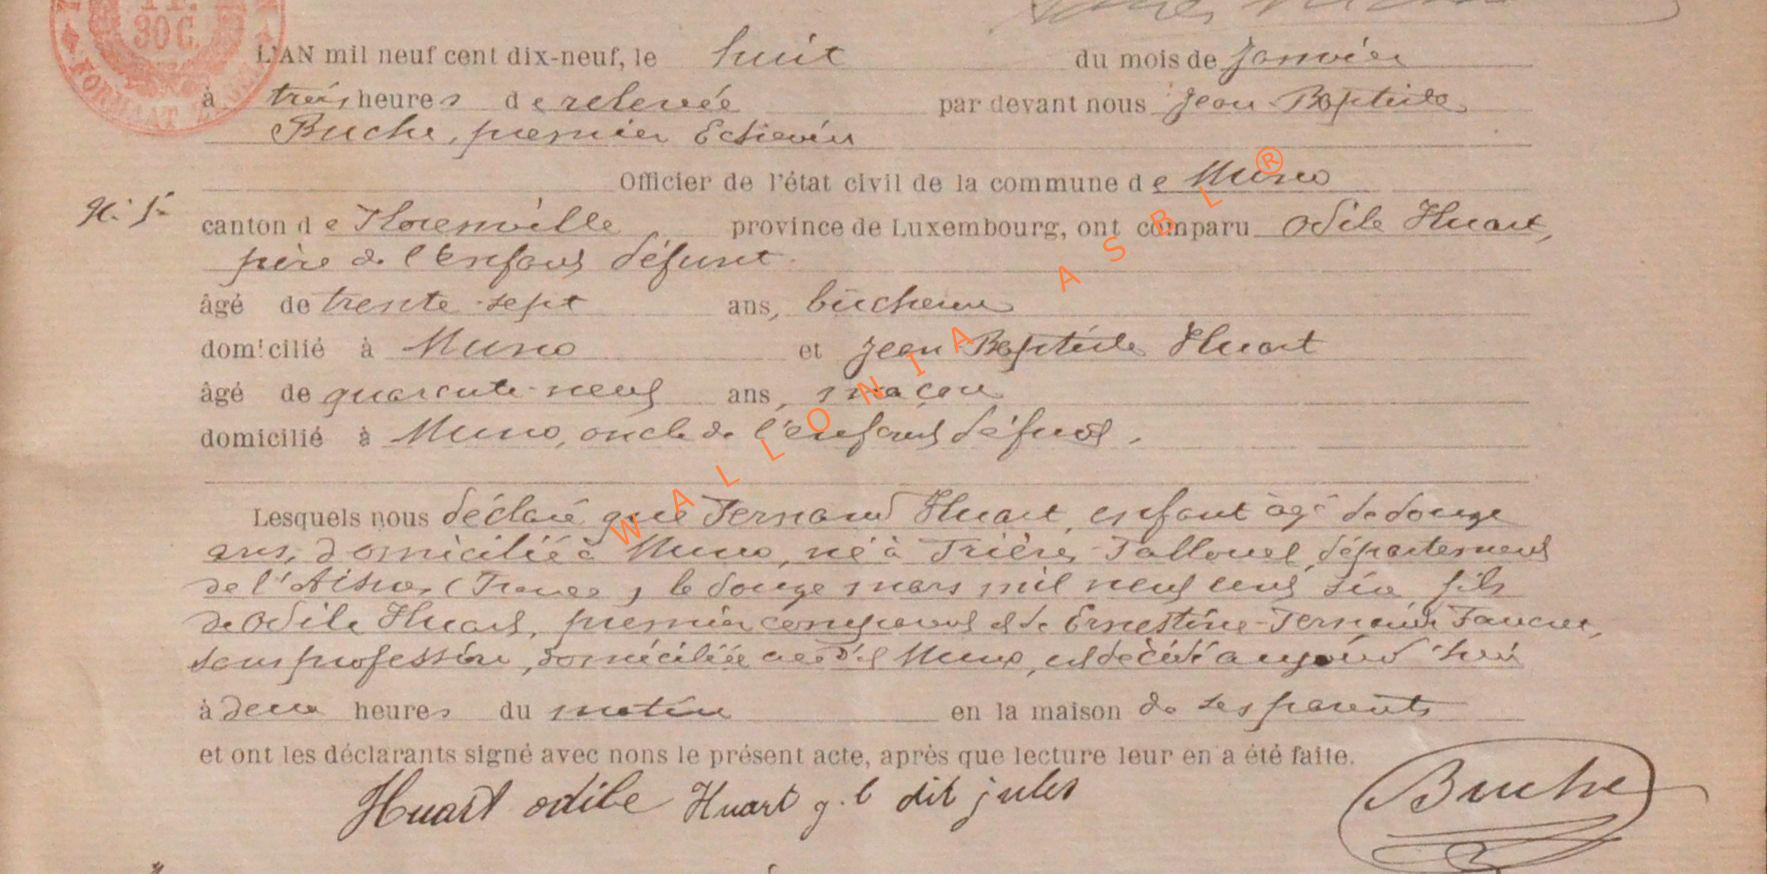 30 C.
L'AN mil neuf cent dix-neuf, le huit du mois de Janvier
à trois heures de relevée par devant nous Jean Baptiste
Buche, premier Echevin
Officier de l'état civil de la commune de Muno
N. 5
canton de Florenville province de Luxembourg, ont comparu Odile Huart,
père de l'enfant défunt
âgé de trente-sept ans, bûcheron
domicilié à Muno et Jean Baptiste Huart
âgé de quarante-neuf ans, maçon
domicilié à Muno, oncle de l'enfant défunt.
Lesquels nous déclaré que Fernand Huart, enfant âgé de douze
ans, domiciliée à Muno, né à département
de l'Aisne (France), le douze mars mil neuf cent six fils
de Odile Huart, premier comparant et de Ernestine-Fernande
sans profession, domiciliée au dit Muno, est décédé aujourd'hui
à deux heures du matin en la maison de ses parents
et ont les déclarants signé avec nous le présent acte, après que lecture leur en a été faite.
Huart odile Huart J. b dit jules
Buche
WALLONIA ASBL ®